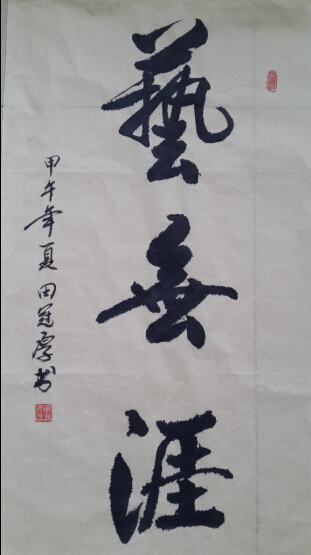 藝無涯
甲午年夏田冠厚书